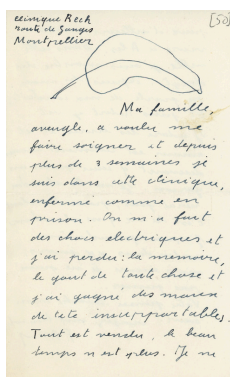 clinique Rech
route de Ganges
Montpellier
[50]
Ma famille,
aveugle, a voulu me
faire soigner et depuis
plus de 3 semaines je
suis dans cette clinique,
enfermé comme en
prison. On m'a fait
des chocs electriques et
j'ai perdu : la memoire,
le gout de toute chose et
j'ai gagné des maux
de tete insupportables.
Tout est vendu, le beau
temps n'est plus. Je ne